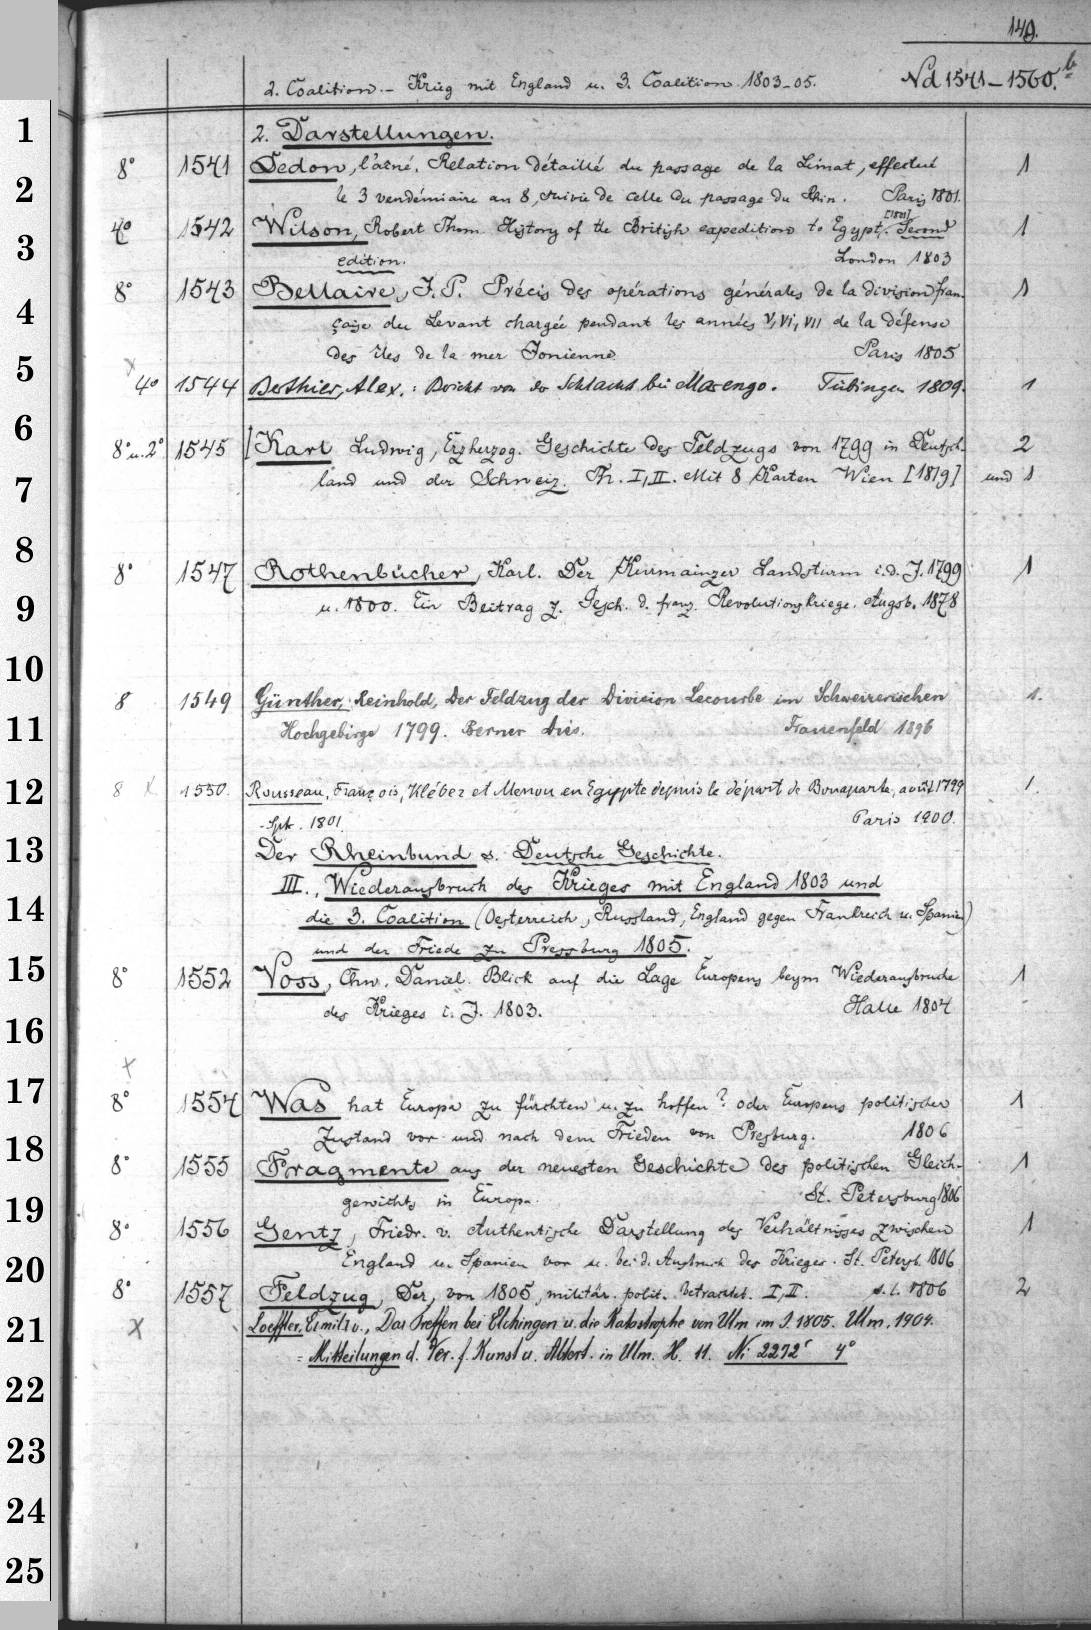 149.
2. Coalition. – Krieg mit England u. 3. Coalition 1803–05. Nd 1541–1560.b
2. Darstellungen.
8° 1541 Dedon, l'aîné. Relation détaillé du passage de la Limat, effectué 1
le 3 vendémiaire an 8, suivie de celle du passage du Rhin. Paris 1801.
4° 1542 Wilson, Robert Thom. History of the British expedition to Egypt. [1801] Second 1
edition. London 1803
8° 1543 Bellaire, J. P. Précis des opérations générales de la division fran- 1
çaise du Levant chargée pendant les années V, VI, VII de la défense
des îles de la mer Jonienne. Paris 1805
x 4° 1544 Berthier, Alex.: Bericht von der Schlacht bei Marengo. Tübingen 1809. 1
8° u. 2° 1545 [Karl Ludwig, Erzherzog. Geschichte des Feldzugs von 1799 in Deutsch- 2
land und der Schweiz. Th. I, II. Mit 8 Karten Wien [1819] und 1
8° 1547 Rothenbücher, Karl. Der Kurmainzer Landsturm i. d. J. 1799 1
u. 1800. Ein Beitrag z. Gesch. d. franz. Revolutionskriege. Augsb. 1878
8 1549 Günther, Reinhold, Der Feldzug der Division Lecourbe im Schweizerischen 1.
Hochgebirge 1799. Berner Diss. Frauenfeld 1896
8 x 1550. Rousseau, François, Kléber et Menou en Egypte depuis le départ de Bonaparte, août 1799 1.
-Spt. 1801. Paris 1900.
Der Rheinbund s. Deutsche Geschichte.
III., Wiederausbruch des Krieges mit England 1803 und
die 3. Coalition (Oesterreich, Russland, England gegen Frankreich u. Spanien)
und der Friede zu Pressburg 1805.
8° 1552 Voss, Chr. Daniel. Blick auf die Lage Europens beym Wiederausbruche 1
des Krieges i. J. 1803. Halle 1804
x
8° 1554 Was hat Europa zu fürchten u. zu hoffen? oder Europens politischer 1
Zustand vor und nach dem Frieden von Presburg. 1806
8° 1555 Fragmente aus der neuesten Geschichte des politischen Gleich- 1
gewichts in Europa. St. Petersburg 1806
8° 1556 Gentz, Friedr. v. Authentische Darstellung des Verhältnisses zwischen 1
England u. Spanien vor u. bei d. Ausbruch des Krieges. St. Petersb. 1806
8° 1557 Feldzug, Der, von 1805, militär. polit. betrachtet. I, II. s. l. 1806 2
x Loeffler, Emil v., Das Treffen bei Elchingen u. die Katastrophe von Ulm im J. 1805. Ulm. 1904.
= Mitteilungen d. Ver. f. Kunst u. Altert. in Ulm. H. 11. Ni 2272r 4°
1
2
3
4
5
6
7
8
9
10
11
12
13
14
15
16
17
18
19
20
21
22
23
24
25